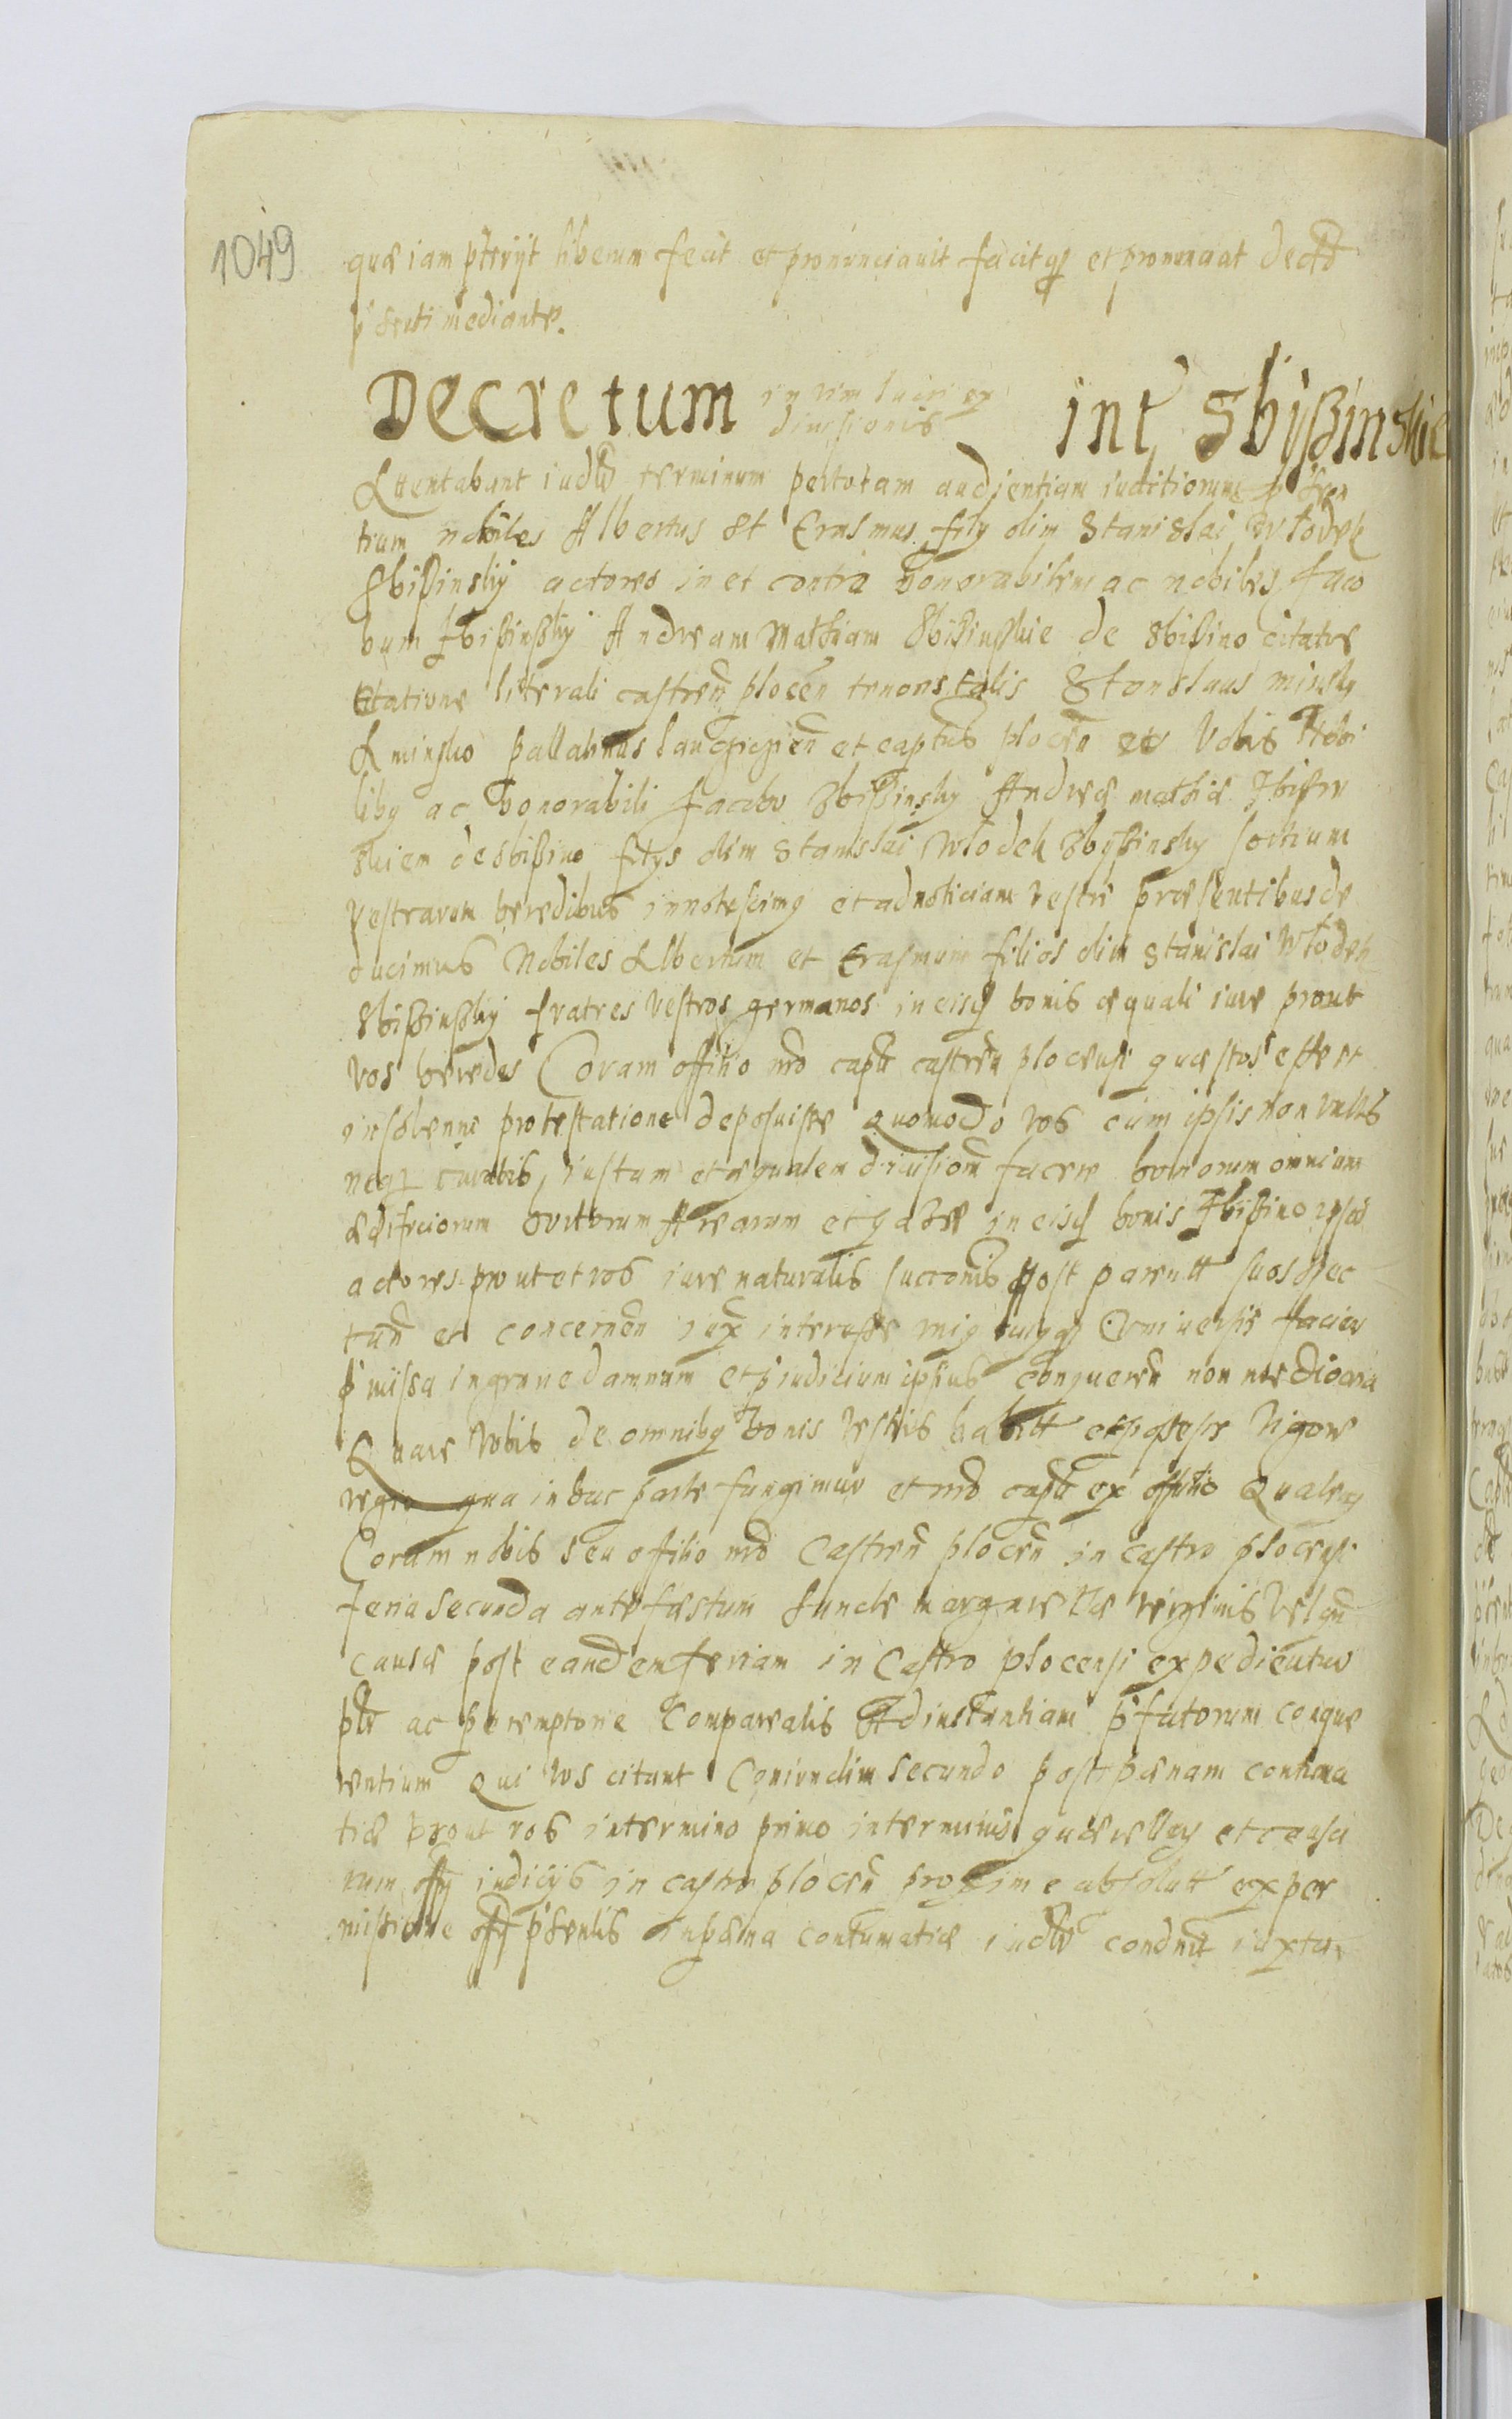 1049
quæ iam pteryt liberum fecit et pronunciauit facitq et pronunciat Decto
p senti mediante.
Decretum in vim lucri ex int Sbyßinskie
diuisionis
Attentabant iudlr terminum per totam audientiam iuditiorum p sen
tium nobiles Albertus et Erasmus fily olim Stanislai Wlodek
Sbißinsky actores in et contra honorabilem ac nobiles Jaco
bum Zbißinsky Andream Mathiam Sbißinskie de Sbißino citatos
Citatione literali castren plocen tenoris talis Stanslaus minsky
A minsko pallatinus et captus plocen vobis Nobi
liby ac honorabili Jacobo Zbißinsky Andreæ mathiæ Zbißin
skiem de sbißino fiłys olim Stanislai Wlodek Zbyßinsky sortium
vestrarum heredibus innotescimy et ad noticiam vestrã præsentibus de
ducimus Nobiles Albertum et Erasmum filios olim Stanislai Wlodek
Sbißinsky fratres vestros germanos in eisd bonis æquali iure prout
vos heredes Coram offitio nro capli castren plocensi quæstos esse et
in solenni protestatione deposuisse Quomodo vos cum ipsis non vultis
neq curatis, iustam et æqualem diuisionem facere bonorum omnium
ædificiorum hortorum Arearum et gazæ in eisd bonis Zbißino ipsos
actores prout et vos iure naturalis succonis post parentt suos spec
tan et concernen iux interesse Vniuersis facien
p missa in graue damnum et p iudicium ipsius conqueren non mediocria
Quare vobis de omniby bonis vestris habitt et possess Vigore
regio qua in hac parte fungimur et nro capli ex offitio Quateny
Coram nobis seu offitio nro Castren plocen in castro plocensi
feria secunda ante festum Sanctæ margaretæ virginis vel qn
causæ post eandem feriam in Castro plocensi expedientur
plr ac peremptorie Compareatis Ad instantiam p fatorum conque
rentium Qui vos citant Coniunctim secundo post pænam contuma
tiæ prout vos in termino primo in terminis quærellay et causa
rum offy iudicys in castro plocen proxime absolutt ex per
missione offy p sentis in pæna contumatiæ iudlr condnit iuxta